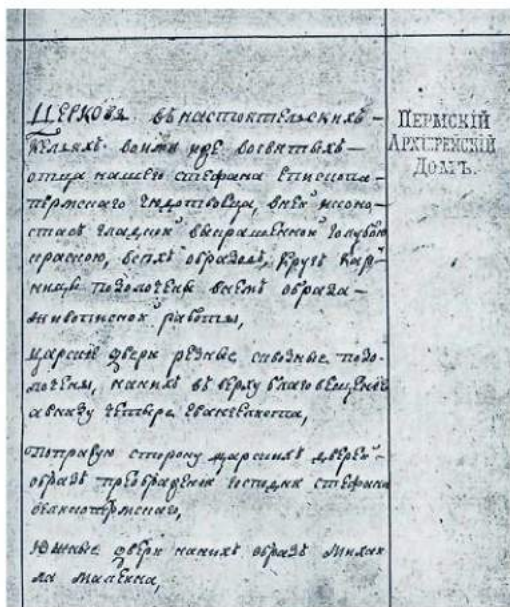 Церковь въ настоятельскихъ –
кельяхъ во имя иже во святыхъ –
отца нашего стефана Епископа –
пермскаго чюдотворца, внеи иконо–
стасъ гладкои выкрашенной голубою
краскою, вехъ образовъ, кругъ кар–
низы позолочены внемъ образа –
живописнои работы,
царские двери резные сквозные позо–
лочены, нанихъ въ верху благовещение
авнизу четыре евангелиста,
поправую сторону царскихъ дверей –
образъ преображения господня стефана
великопермскаго,
Южные двери нанихъ образъ Михаи
ла
ПЕРМСКІЙ
АРХІЕРЕЙСКІЙ
ДОМЪ.